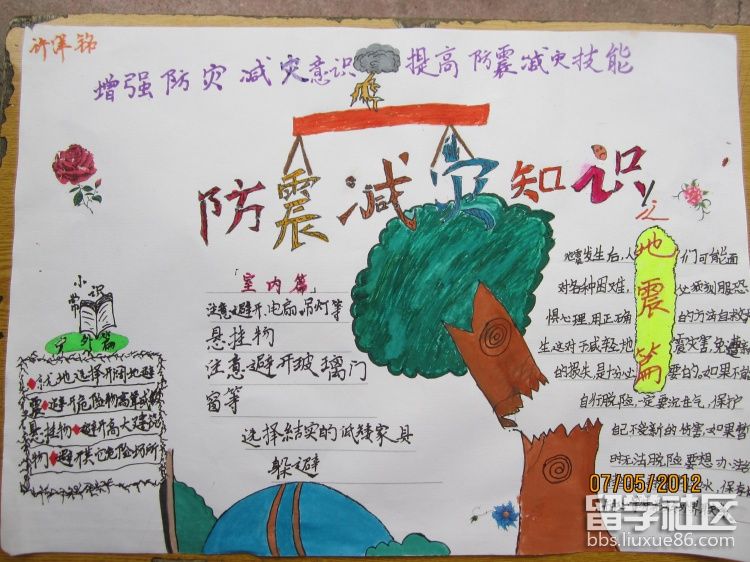 许泽铭
增强防灾减灾意识 提高防震减灾技能
防震减灾知识
之
地震篇
小常识
室外篇
就地选择开阔地避
震♦避开危险物高耸或
悬挂物♦避开高大建筑
物♦避开其它危险场所
室内篇
注意避开,电扇,吊灯等
悬挂物
注意避开玻璃门
窗等
选择结实的低矮家具
躲避
地震发生后,人们可能面
对各种困难,必须克服恐
惧心理,用正确的方法自救
生这对于减轻地震灾害,免
的损失,是十分必要的,如果不能
自行脱险,一定要沉住气,保护
自己不受新的伤害,如果暂
时无法脱险,要想办法
水,保
07/05/2012
留学社区
bbs.liuxue86.com